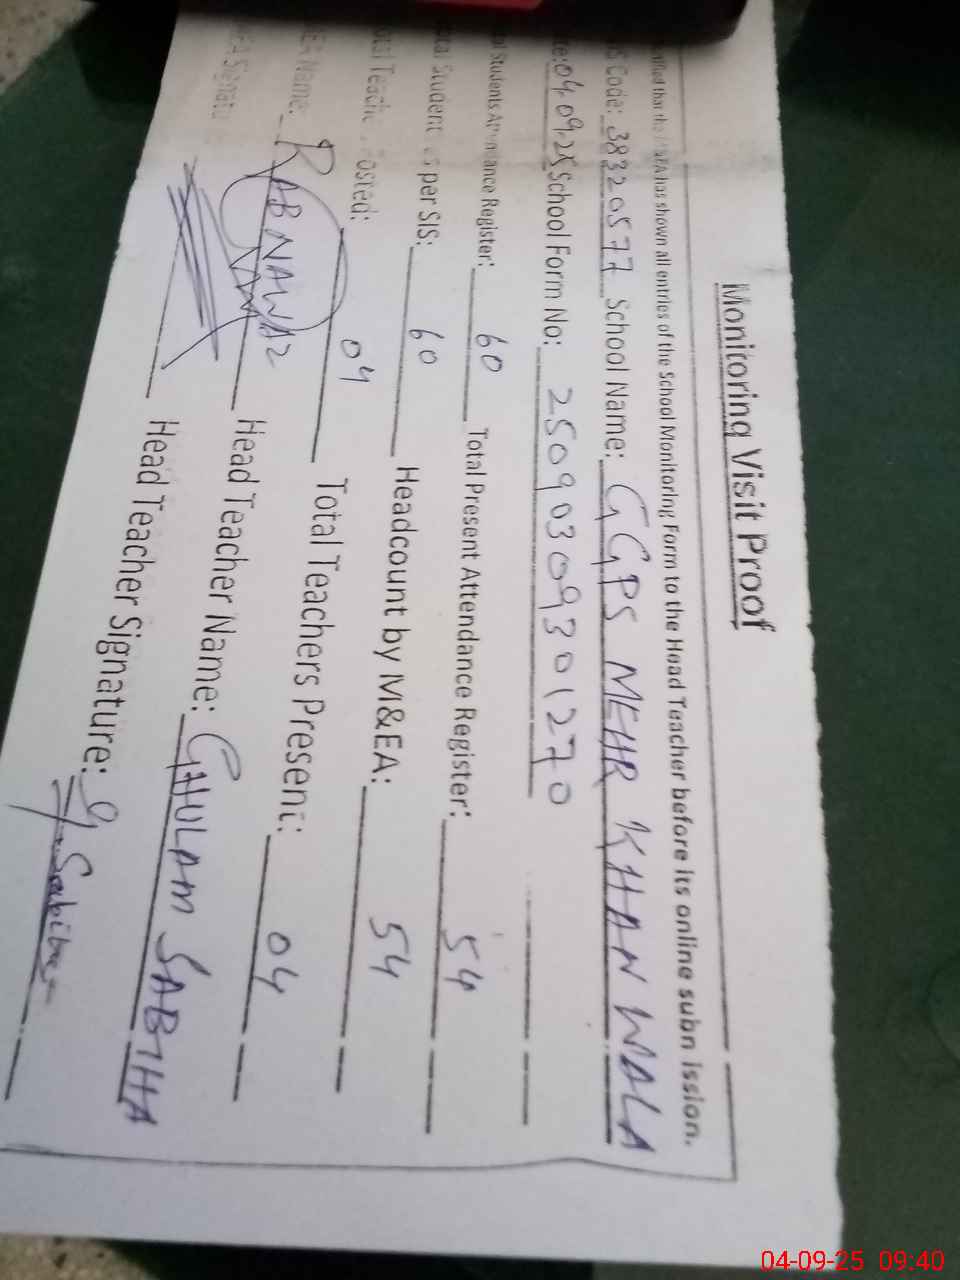 Monitoring Visit Proof
that the has shown all entries of the School Monitoring Form to the Head Teacher before its online subn ission.
Code: 38320577 School Name: GGPS MEHR KHAN WALA
te: 04.09.25 School Form No: 25090309301270
Students Attendance Register: 60 Total Present Attendance Register: 54
Student as per SIS: 60 Headcount by M&EA: 54
Teach Posted: 04 Total Teachers Present: 04
Name: RAB NAWAZ Head Teacher Name: GHULAM SABIHA
Signatu Head Teacher Signature: G Sabiha
04-09-25 09:40